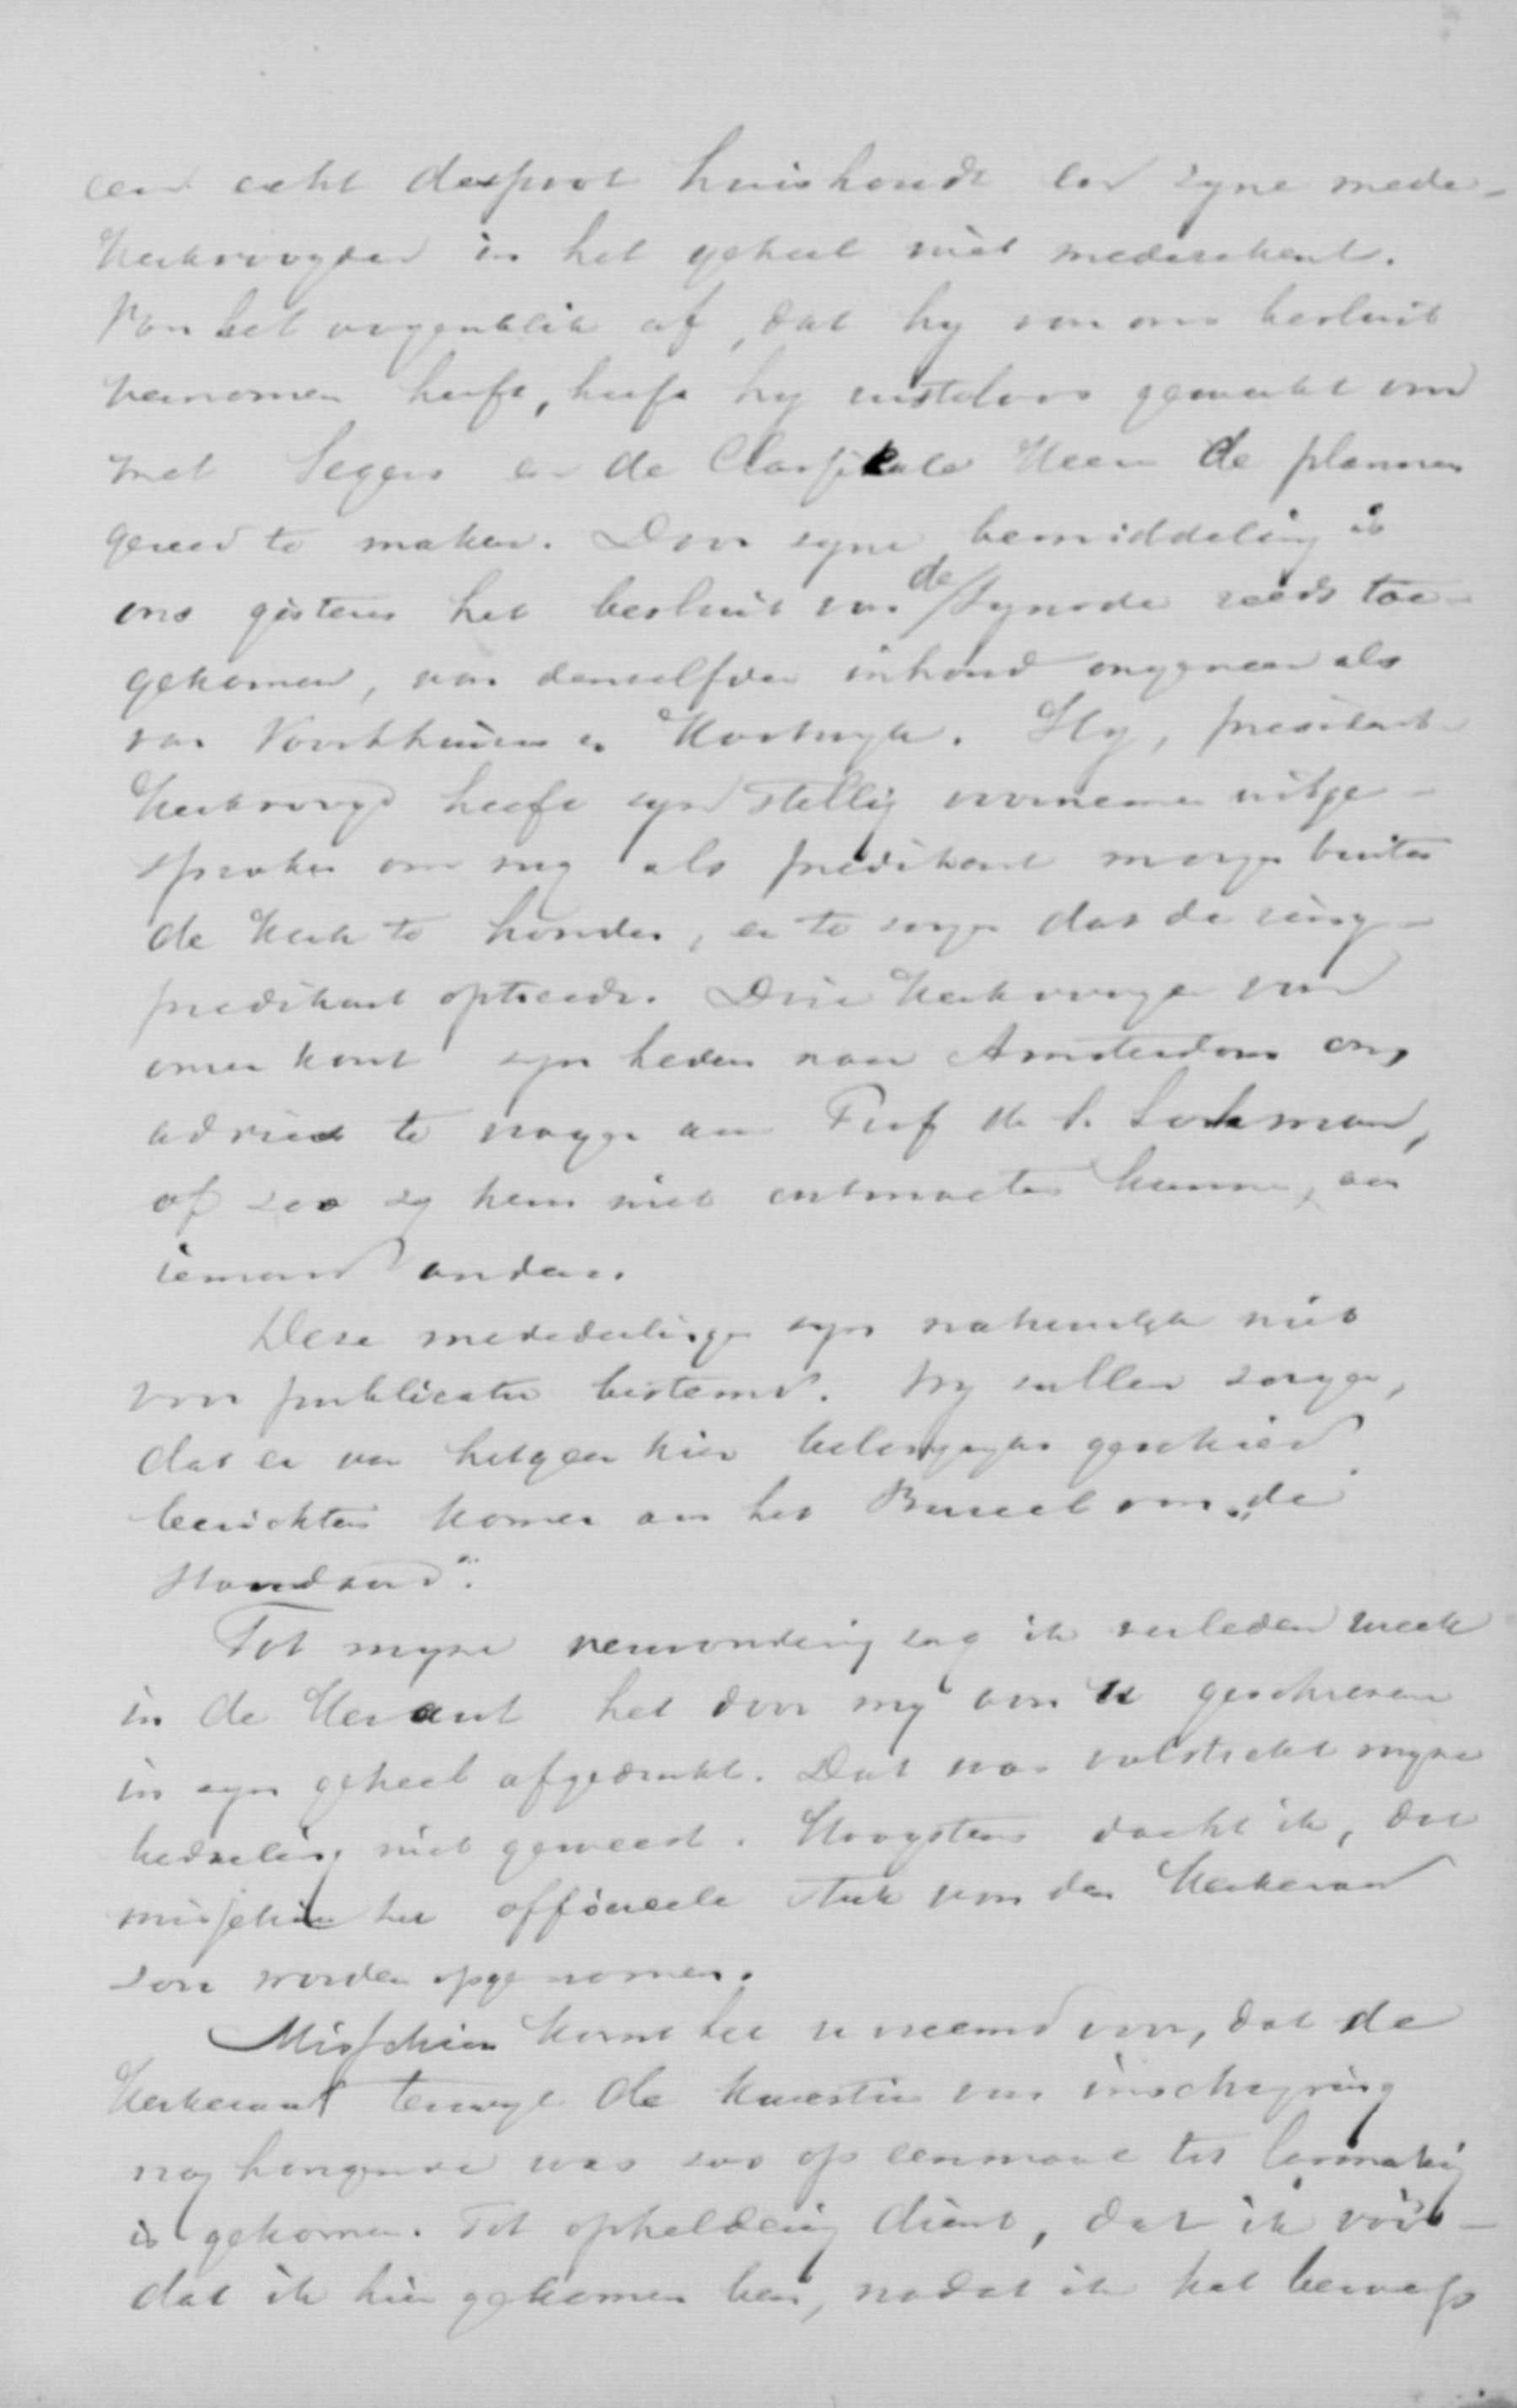 een echt despoot huishoudt en zyne mede-
kerkvoogden in het geheel niet mederekent.
Van het oogenblik af, dat hy van ons besluit
vernomen heeft, heeft hy rusteloos gewerkt om
met Segers en de Classikale Heeren de plannen
gereed te maken. Door zyne bemiddeling is
ons gisteren het besluit van de Synode reeds toe-
gekomen, van denzelfden inhoud ongeveer als
van Voorthuizen en Kootwyk. Hy, president
Kerkvoogd heeft zyn stellig voornemen uitge-
sproken om my als predikant morgen buiten
de Kerk te houden, en te zorgen dat de ring-
predikant optreedt. Drie Kerkvoogden van
onzen kant zyn heden naar Amsterdam om
advies te vragen aan Prof de S. Lohman,
of zoo zy hem niet ontmoeten kunnen, aan
iemand anders.
Deze mededeelingen zyn natuurlyk niet
voor publicatie bestemd. Wy zullen zorgen,
dat er van hetgeen hier belangryks geschied
berichten komen aan het Bureel van „de
Standaard".
Tot myne verwondering zag ik verleden week
in de Heraut het door my aan U geschreven
in zyn geheel afgedrukt. Dat was volstrekt myne
bedoeling niet geweest. Hoogstens dacht ik, dat
misschien het officieele stuk van den Kerkeraad
zou worden opgenomen.
Misschien komt het U vreemd voor, dat de
Kerkeraad terwyl de kwestie van inschryving
nog hangende was zoo op eenmaal tot losmaking
is gekomen. Tot opheldering dient, dat ik vóór-
dat ik hier gekomen ben, nadat ik het beroep